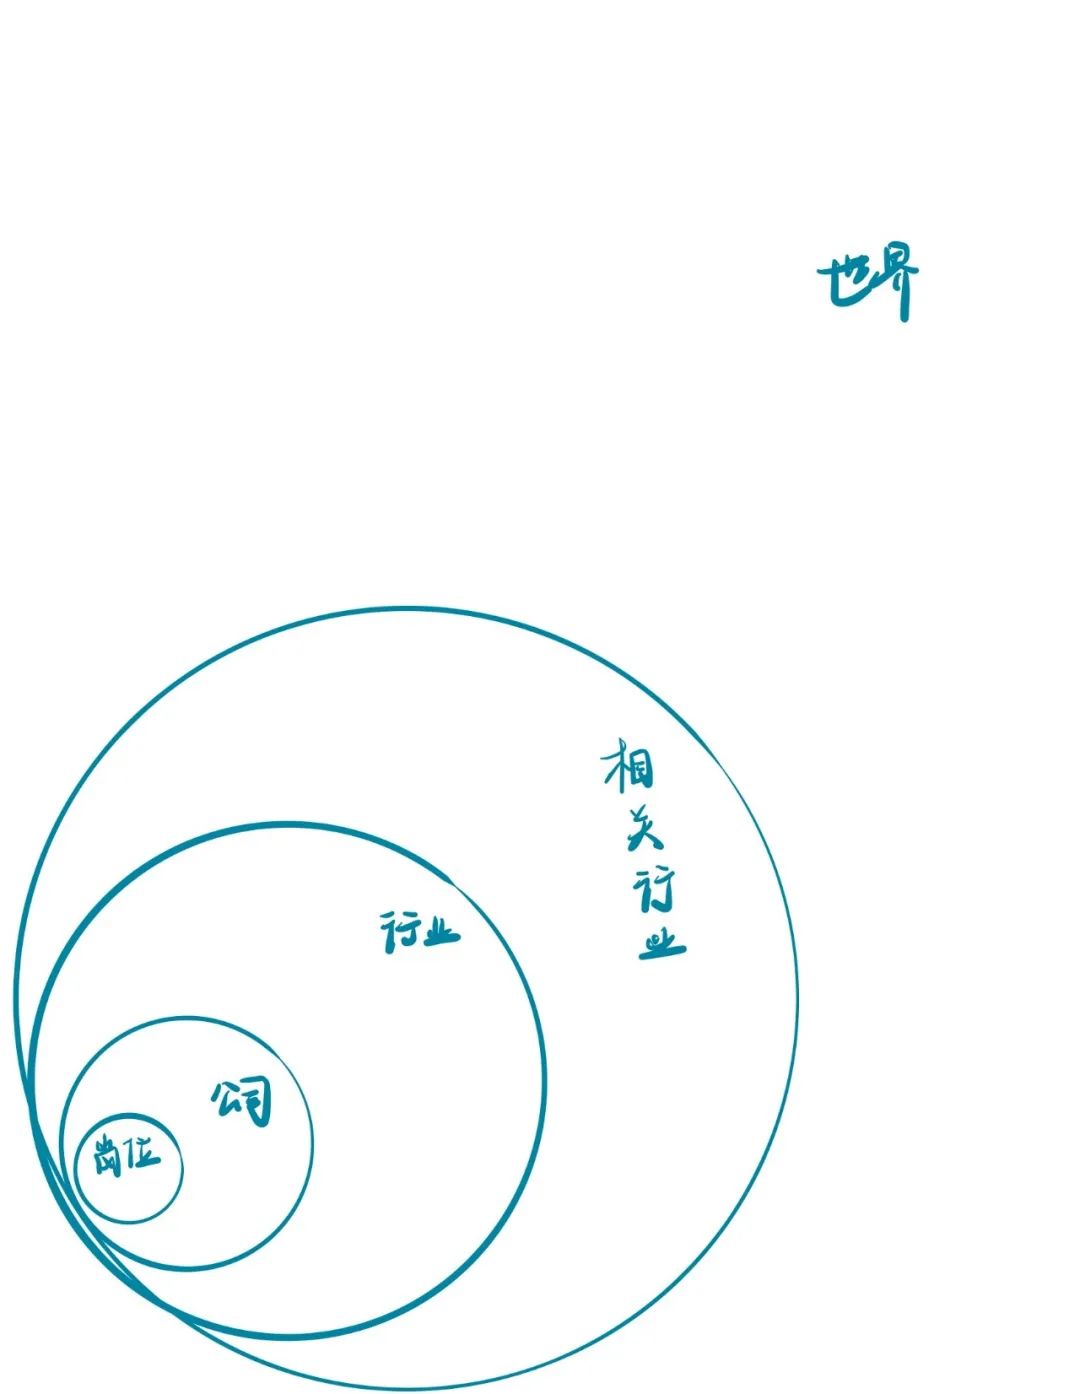 世界
相
关
行
业
行业
公司
岗位